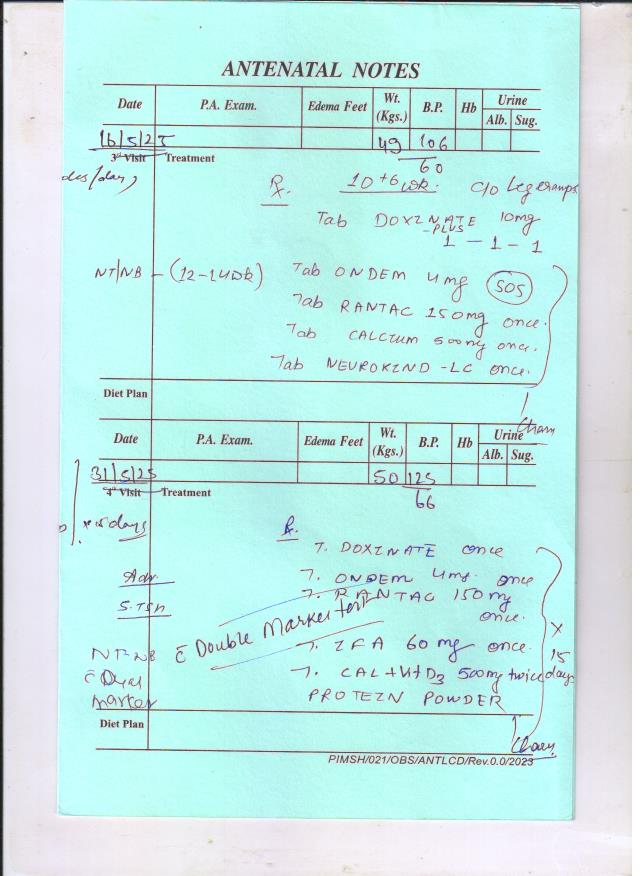 ANTENATAL NOTES
Date P.A. Exam. Edema Feet Wt. (Kgs.) B.P. Hb Urine
Alb. Sug.
16/5/25 49 106/60
3rd Visit Treatment
Rx. 10+6 wk. C/O Leg cramps
Tab DOXINATE 10mg
-PLUS
1 - 1 - 1
NT/NB - (12-14wk) Tab ONDEM 4mg SOS
Tab RANTAC 150mg once.
Tab CALCIUM 500mg once.
Tab NEUROKIND -LC once.
Diet Plan
Date P.A. Exam. Edema Feet Wt. (Kgs.) B.P. Hb Urine
Alb. Sug.
31/5/25 50 125/66
4th Visit Treatment
x 15 days
Rx.
T. DOXINATE once
Adv. T. ONDEM 4mg. once
S.TSH T. RANTAC 150mg
once.
c̄ Double Marker test
T. IFA 60mg once.
NT-NB T. CAL + Vit D3 500mg twice
c̄ Dual PROTEIN POWDER
Marker
x 15 days
Diet Plan
PIMSH/021/OBS/ANTLCD/Rev.0.0/2023